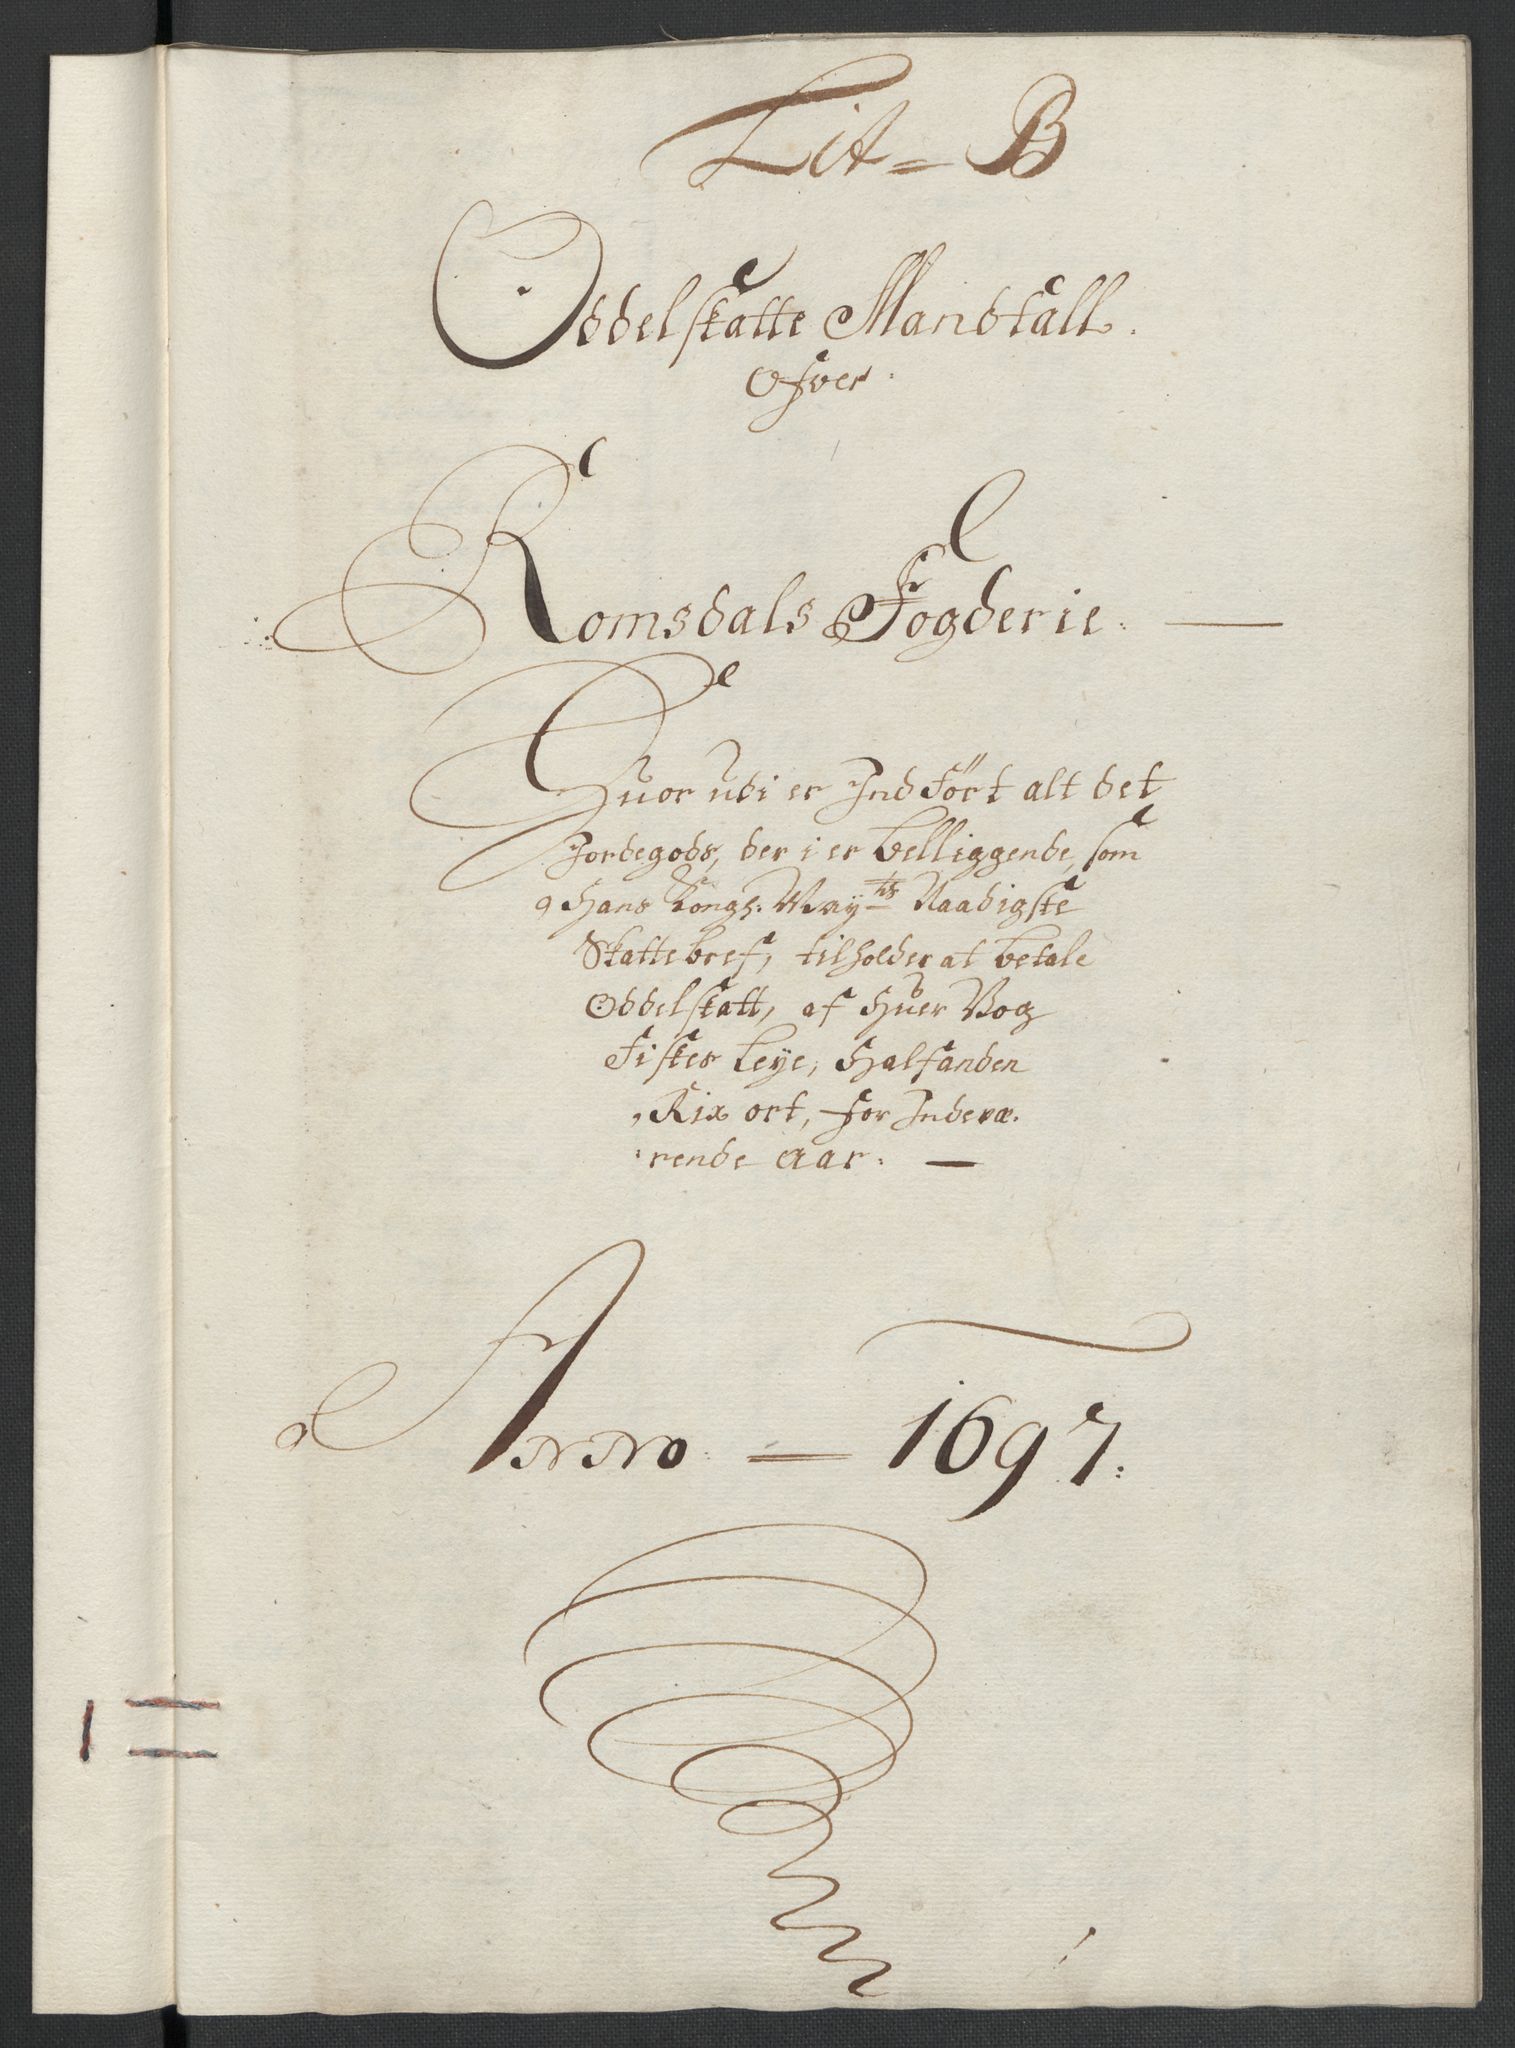 Lit = B
Oddelskatte Mandtall.
Ofver.
Romsdals Fogderie. —
Huor udi er Indført alt det
Jordegods, der i er belliggende, som
Hans Kongl: May^ts Naadigste
Skattebref, tilholder at betale
Oddelskatt, af Huer Vog
Fiskes leye, Halfanden
Rix ort, for Indevæ-
rende Aar. —
Anno — 1697.